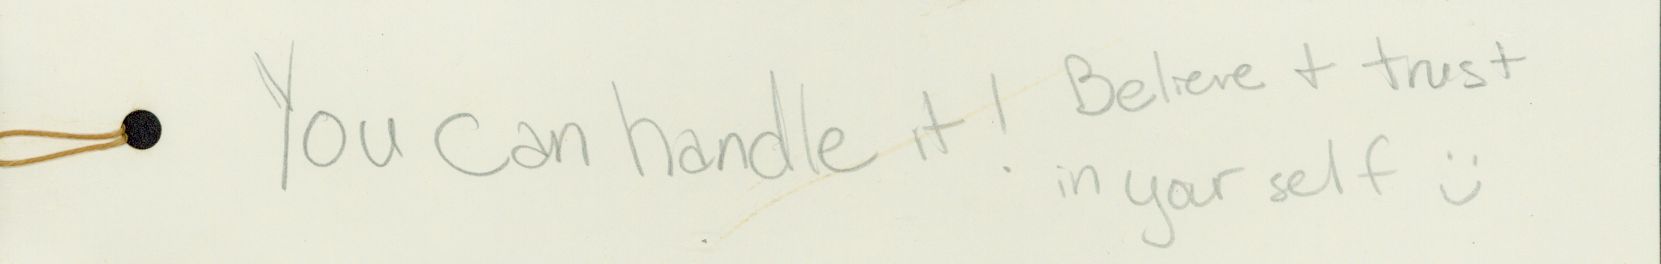 You can handle it! Believe + trust
in your self :)